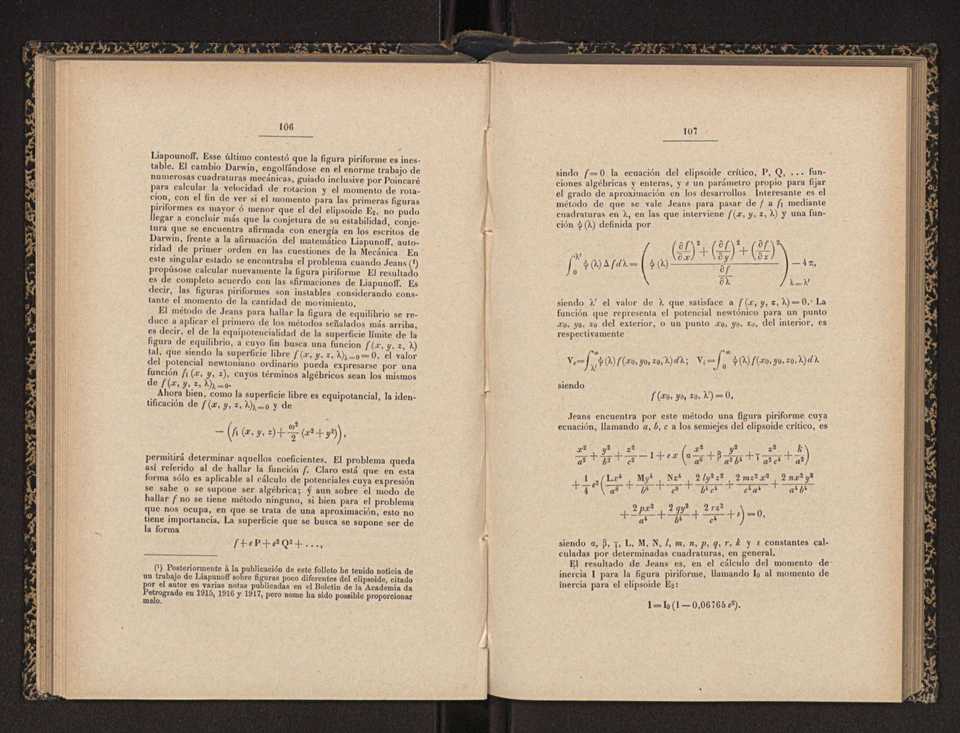 106
Liapounoff. Esse último contestó que la figura piriforme es ines-
table. El cambio Darwin, engolfándose en el enorme trabajo de
numerosas cuadraturas mecánicas, guiado inclusive por Poincaré
para calcular la velocidad de rotacion y el momento de rota-
cion, con el fin de ver si el momento para las primeras figuras
piriformes es mayor ó menor que el del elipsoide E₂, no pudo
llegar a concluir más que la conjetura de su estabilidad, conje-
tura que se encuentra afirmada con energía en los escritos de
Darwin, frente a la afirmación del matemático Liapunoff, auto-
ridad de primer orden en las cuestiones de la Mecánica En
este singular estado se encontraba el problema cuando Jeans (¹)
propúsose calcular nuevamente la figura piriforme El resultado
es de completo acuerdo con las afirmaciones de Liapunoff. Es
decir, las figuras piriformes son instables considerando cons-
tante el momento de la cantidad de movimiento.
El método de Jeans para hallar la figura de equilibrio se re-
duce a aplicar el primero de los métodos señalados más arriba,
es decir, el de la equipotencialidad de la superficie límite de la
figura de equilibrio, a cuyo fin busca una funcion f (x, y, z, λ)
tal, que siendo la superficie libre f (x, y, z, λ)λ=0 = 0, el valor
del potencial newtoniano ordinario pueda expresarse por una
función f₁ (x, y, z), cuyos términos algébricos sean los mismos
de f (x, y, z, λ)λ=0.
Ahora bien, como la superficie libre es equipotancial, la iden-
tificación de f (x, y, z, λ)λ=0 y de
— (f₁ (x, y, z) + ω²/2 (x² + y²)),
permitirá determinar aquellos coeficientes. El problema queda
así referido al de hallar la función f. Claro está que en esta
forma sólo es aplicable al cálculo de potenciales cuya expresión
se sabe o se supone ser algébrica; y aun sobre el modo de
hallar f no se tiene método ninguno, si bien para el problema
que nos ocupa, en que se trata de una aproximación, esto no
tiene importancia. La superficie que se busca se supone ser de
la forma
f + ε P + ε² Q² + ...,
(¹) Posteriormente à la publicación de este folleto he tenido noticia de
un trabajo de Liapunoff sobre figuras poco diferentes del elipsoide, citado
por el autor en varias notas publicadas en el Boletin de la Academia da
Petrogrado en 1915, 1916 y 1917, pero nome ha sido possible proporcionar
melo.
107
sindo f = 0 la ecuación del elipsoide crítico, P, Q, ... fun-
ciones algébricas y enteras, y ε un parámetro propio para fijar
el grado de aproximación en los desarrollos Interesante es el
método de que se vale Jeans para pasar de f a f₁ mediante
cuadraturas en λ, en las que interviene f (x, y, z, λ) y una fun-
ción ψ (λ) definida por
∫₀^λ' ψ (λ) Δ f d λ = (ψ (λ) ((∂f/∂x)² + (∂f/∂y)² + (∂f/∂z)²)/(∂f/∂λ))λ=λ' — 4 π,
siendo λ' el valor de λ que satisface a f (x, y, z, λ) = 0. La
función que representa el potencial newtónico para un punto
x₀, y₀, z₀ del exterior, o un punto x₀, y₀, z₀, del interior, es
respectivamente
Vₑ = ∫λ'^∞ ψ (λ) f (x₀, y₀, z₀, λ) d λ; Vᵢ = ∫₀^∞ ψ (λ) f (x₀, y₀, z₀, λ) d λ
siendo
f (x₀, y₀, z₀, λ') = 0,
Jeans encuentra por este método una figura piriforme cuya
ecuación, llamando a, b, c a los semiejes del elipsoide crítico, es
x²/a² + y²/b² + z²/c² — 1 + ε x (α x²/a⁶ + β y²/a² b⁴ + γ z²/a² c⁴ + k/a²)
+ 1/4 ε² (L x⁴/a⁸ + M y⁴/b⁸ + N z⁴/c⁸ + 2 l y² z²/b⁴ c⁴ + 2 m z² x²/c⁴ a⁴ + 2 n x² y²/a⁴ b⁴
+ 2 p x²/a⁴ + 2 q y²/b⁴ + 2 r z²/c⁴ + s) = 0,
siendo α, β, γ, L, M, N, l, m, n, p, q, r, k y s constantes cal-
culadas por determinadas cuadraturas, en general.
El resultado de Jeans es, en el cálculo del momento de
inercia I para la figura piriforme, llamando I₀ al momento de
inercia para el elipsoide E₂:
I = I₀ (1 — 0,06765 ε²).